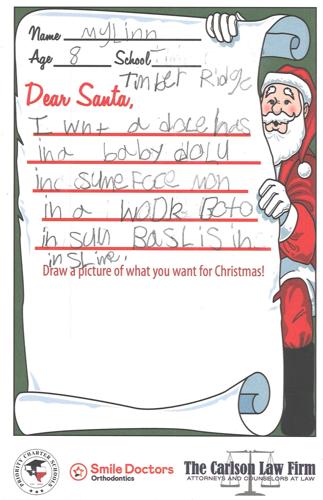 Name Mylinn
Age 8 School
Timber Ridge
Dear Santa,
I wnt a doce has
in a baby dolu
inc sume Foce mon
in a
in sum
in Slime.
Draw a picture of what you want for Christmas!
PRIORITY CHARTER SCHOOLS
Smile Doctors
Orthodontics
The Carlson Law Firm
ATTORNEYS AND COUNSELORS AT LAW